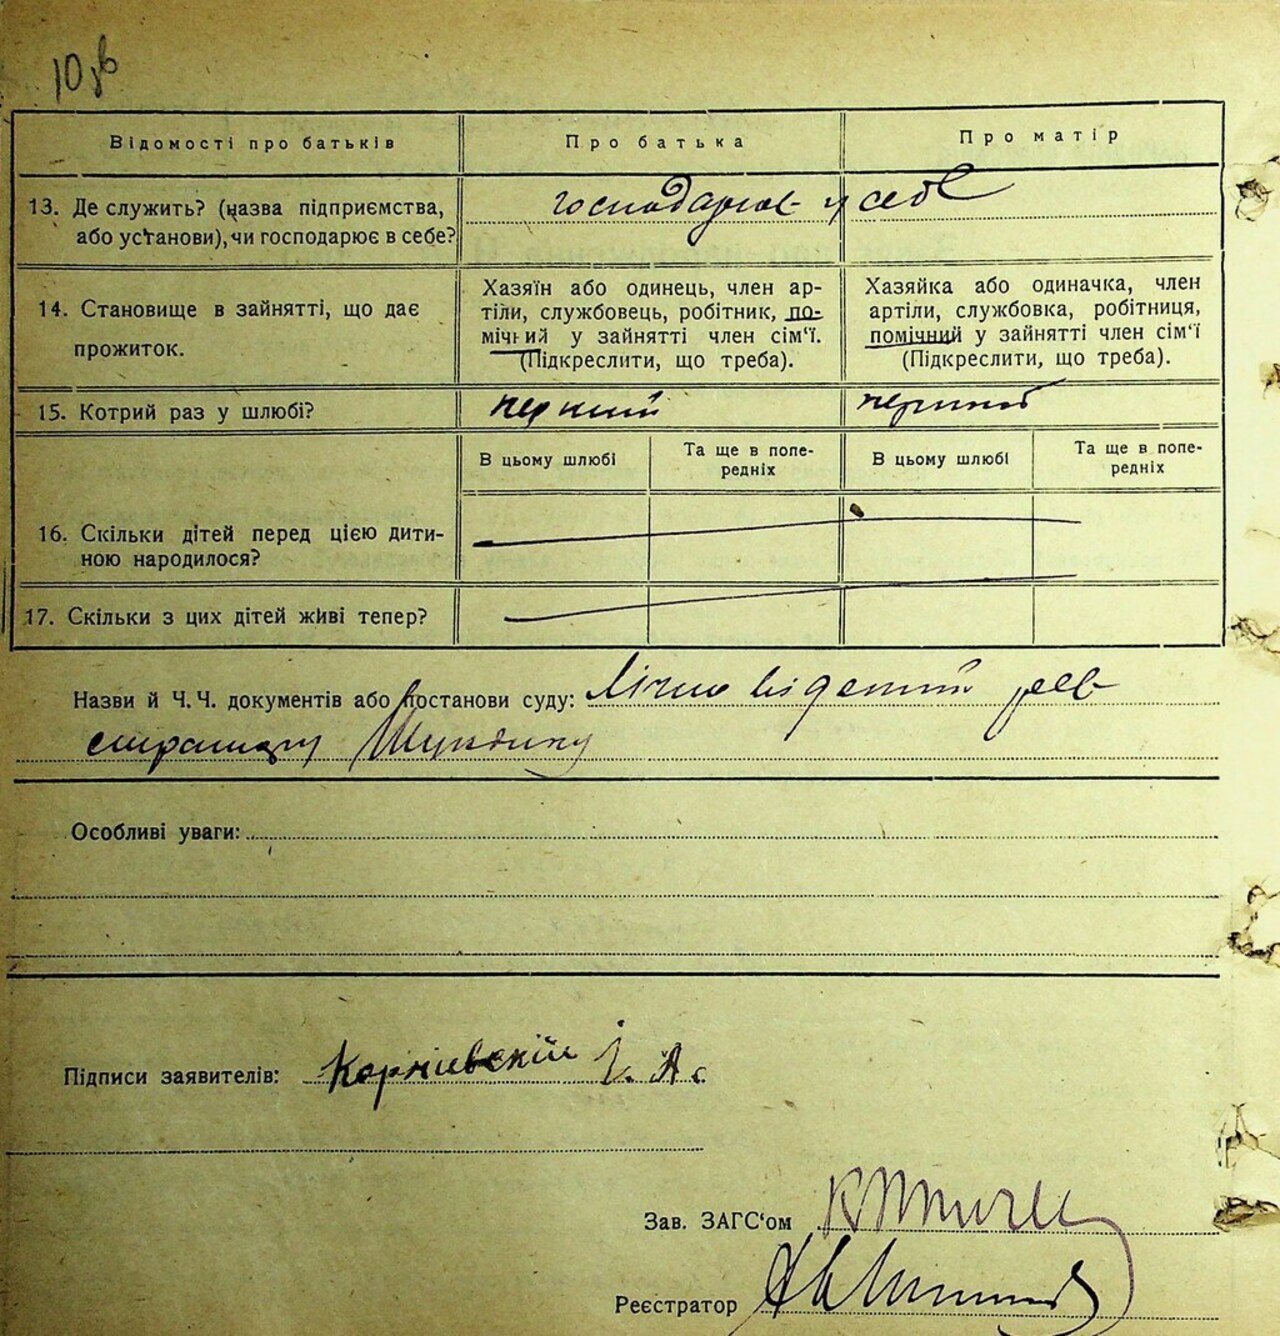 10 зв
Відомості про батьків Про батька Про матір
13. Де служить? (назва підприємства, або установи), чи господарює в себе?
господарює у себе
14. Становище в зайнятті, що дає прожиток.
Хазяїн або одинець, член ар-
тілі, службовець, робітник, по-
мічний у зайнятті член сім'ї.
(Підкреслити, що треба).
Хазяйка або одиначка, член
артілі, службовка, робітниця,
помічний у зайнятті член сім'ї
(Підкреслити, що треба).
15. Котрий раз у шлюбі? перший перший
В цьому шлюбі Та ще в попе-
редніх В цьому шлюбі Та ще в попе-
редніх
16. Скільки дітей перед цією дити-
ною народилося?
17. Скільки з цих дітей живі тепер?
Назви й Ч.Ч. документів або постанови суду: Лічно відомий реє
стратору
Особливі уваги:
Підписи заявителів: Корнієвский І. А.
Зав. ЗАГС'ом
Реєстратор